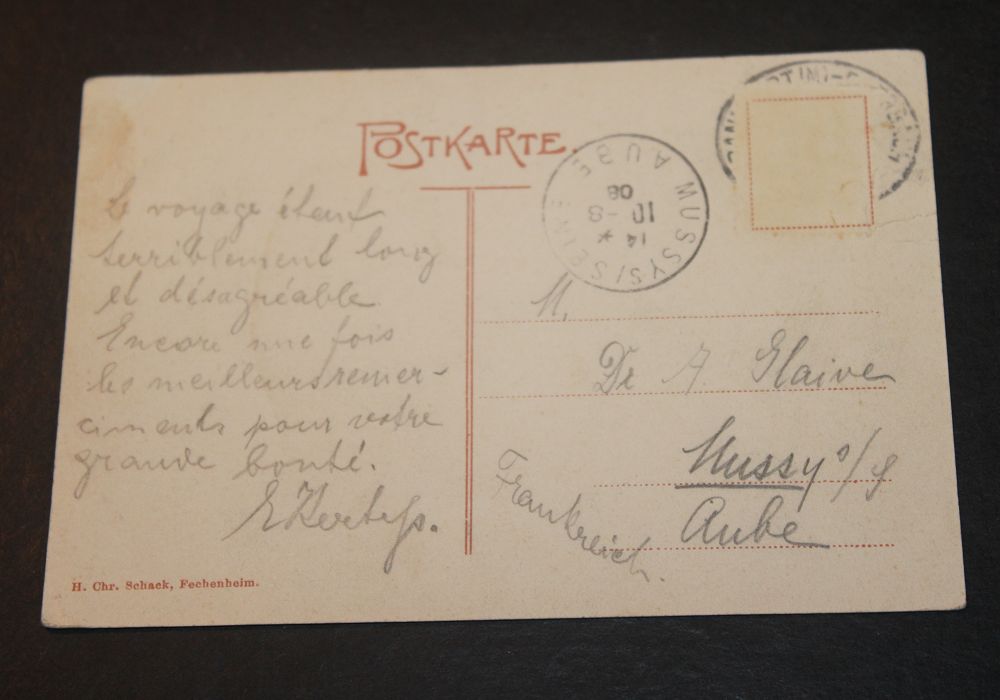 POSTKARTE.
Le voyage étant
terriblement long
et désagréable.
Encore une fois
les meilleurs remer-
ciments pour votre
grande bonté.
MUSSY S/SEINE
AUBE
14 *
10-8
08
M.
Dr A. Glaive
Mussy s/S
Aube
Frankreich.
H. Chr. Schack, Fechenheim.